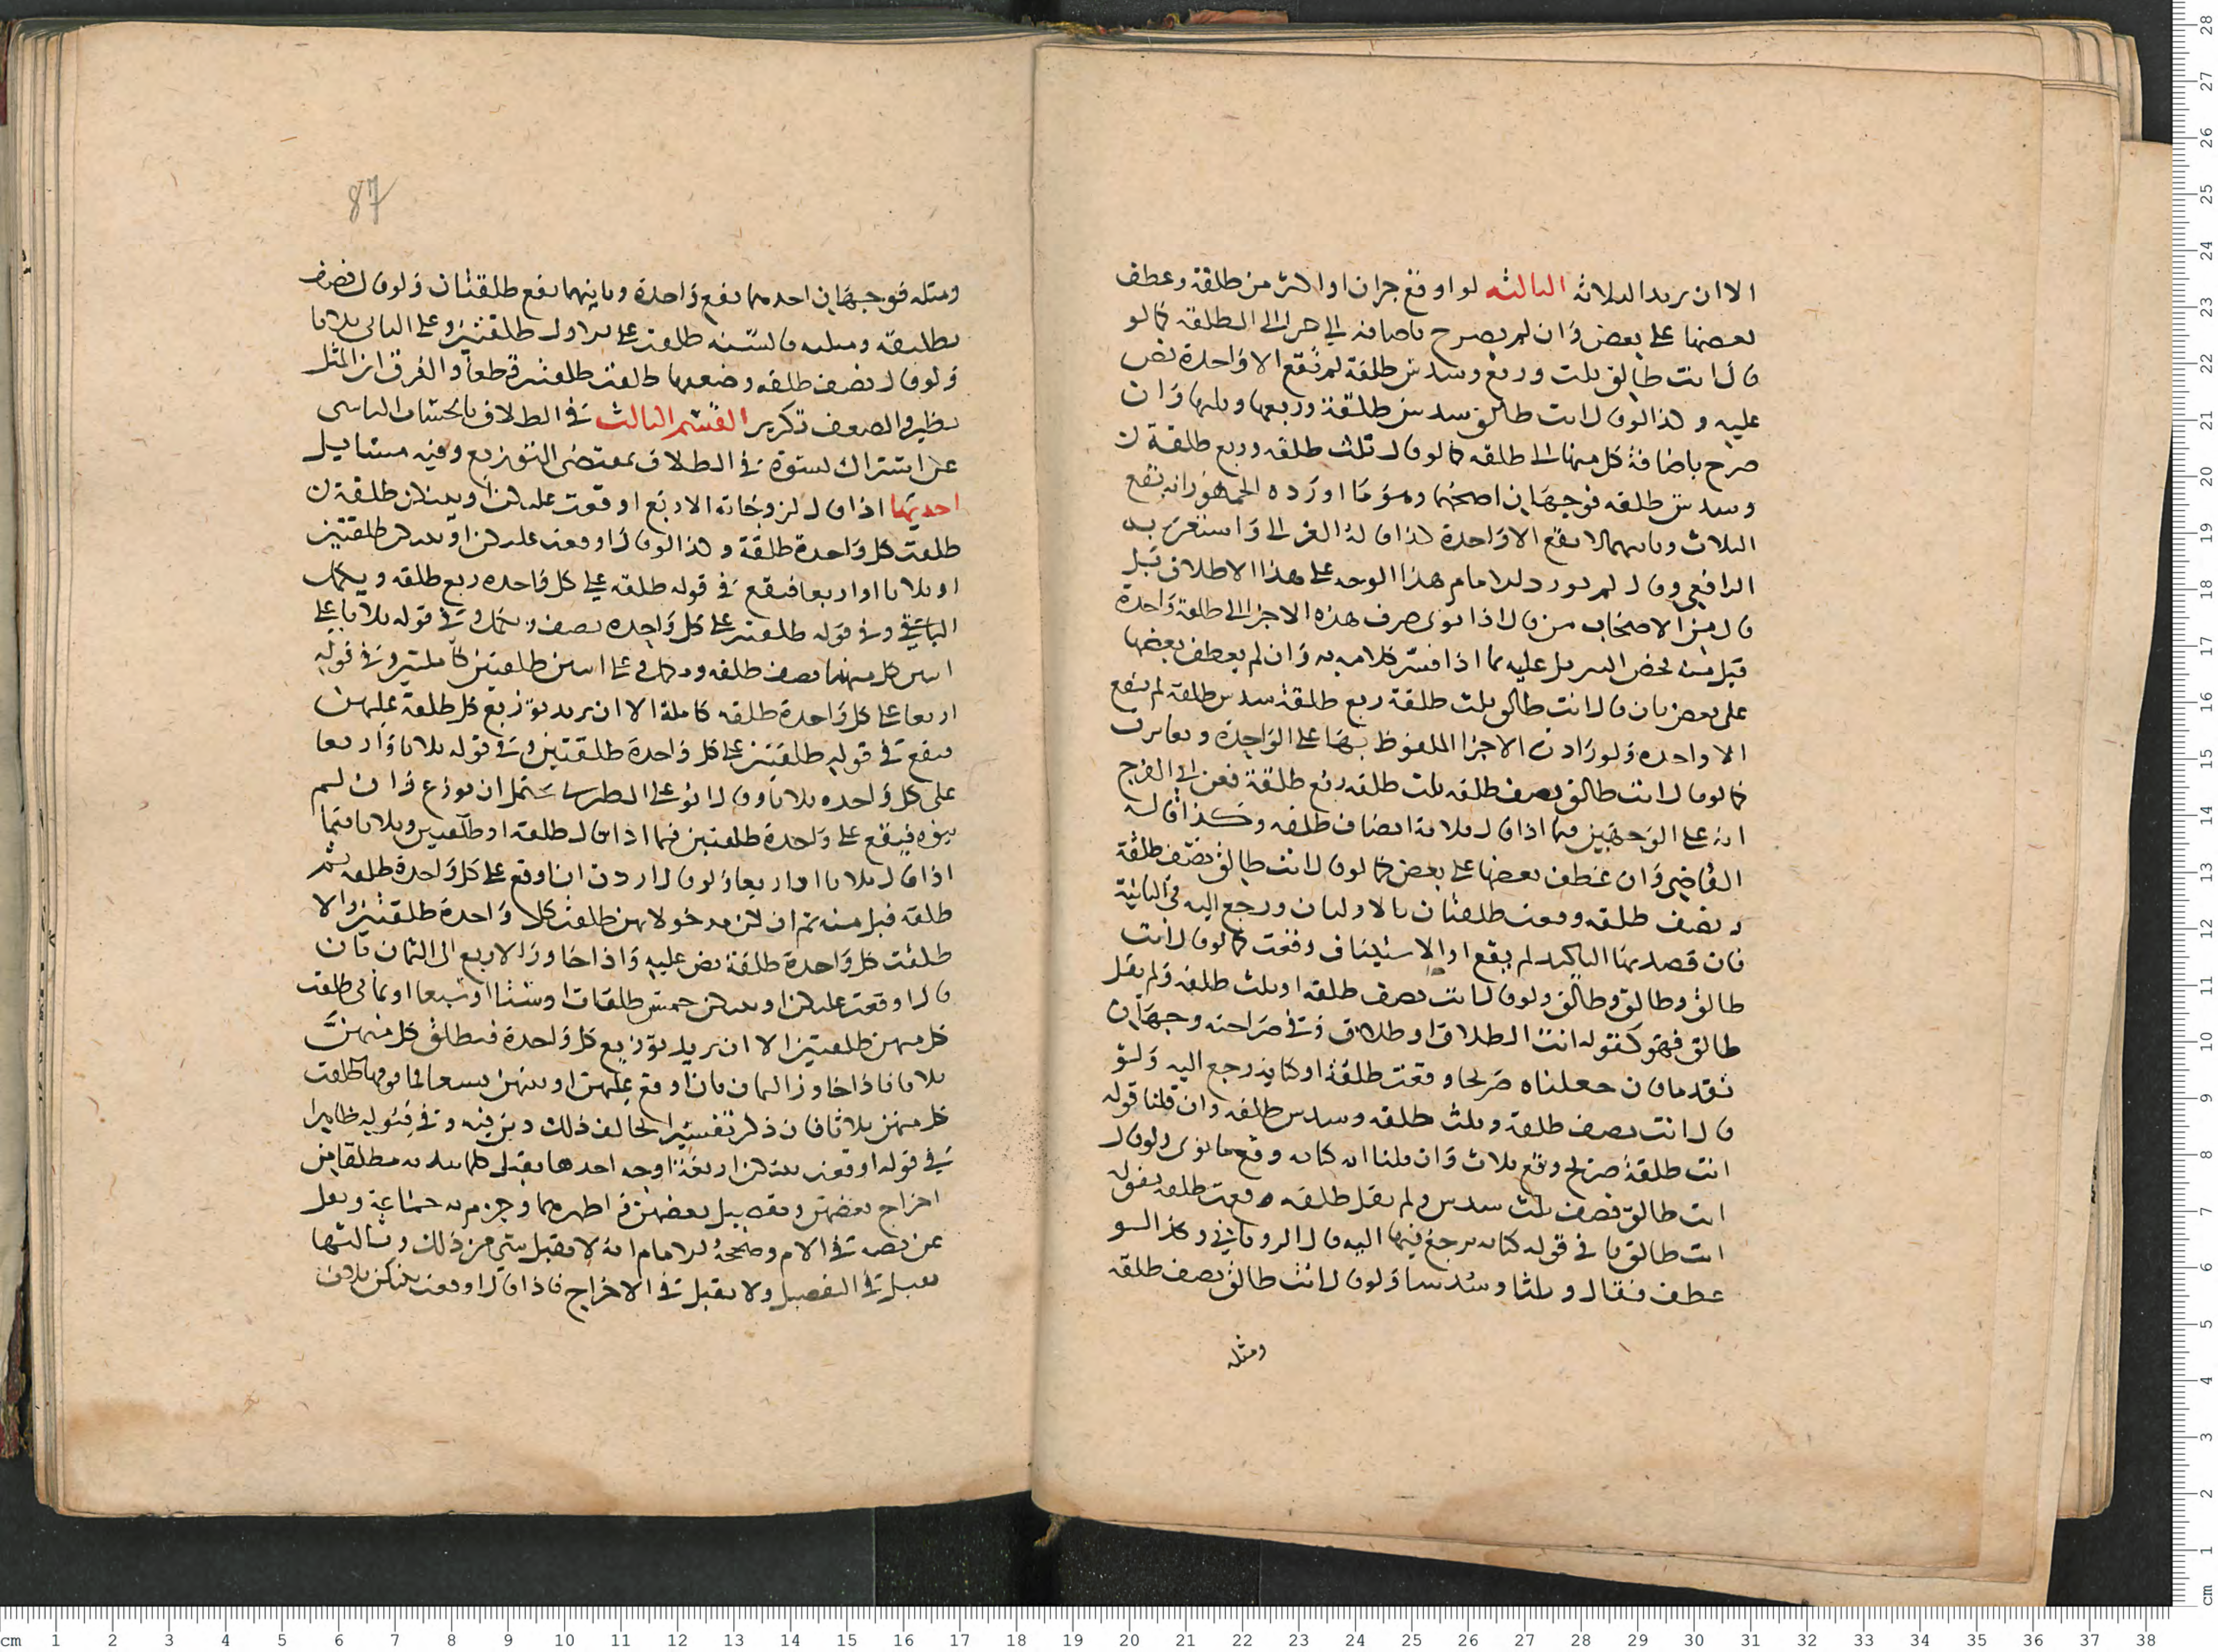 الا ان يريد الثلاثة الثالثة لو اوقع جزان او اكثر من طلقة وعطف
بعضها على بعض وان لم يصرح باضافة الى جزا الى الطلقة كما لو
قال انت طالق ثلث وربع وسدس طلقة لم تقع الا واحدة نص
عليه وكذا لو قال انت طالق سدس طلقة وربعها وثلثها وان
صرح باضافة كل منها الى طلقة كما لو قال ثلث طلقه وربع طلقة
وسدس طلقه فوجهان اصحهما وهو ما اورده الجمهور انه تقع
الثلاث وثانيهما لا تقع الا واحدة كذا قاله الغزالى واستغربه
الرافعي وقال لم يورد الامام هذا الوجه على هذا الاطلاق قبل
قال من الاصحاب من قال اذا نوى صرف هذه الاجزا الى طلقة واحدة
قبل منه عليه كما اذا فسر كلامه به وان لم يعطف بعضها
على بعض بان قال انت طالق ثلث طلقة ربع طلقة سدس طلقة لم تقع
الا واحده ولو زادت الاجزا الملفوظ بها على الواحدة وتغايرت
كما لو قال انت طالق نصف طلقه ثلث طلقه ربع طلقة فعن ابى الفرج
انه على الوجهين فيما اذا قال ثلاثة انصاف طلقه وكذا قاله
القاضي وان عطف بعضها على بعض كما لو قال انت طالق نصف طلقة
ونصف طلقه وقعت طلقتان بالاوليان ورجع اليه في الثانية
فان قصد بها التاكيد لم يقع او الاستيناف وقعت كما لو قال انت
طالق وطالق وطالق ولو قال انت نصف طلقه او ثلث طلقه ولم يقل
طالق فهو كقوله انت الطلاق او طلاق وفي صراحته وجهان
تقدما فان جعلناه صريحا وقعت طلقة او كناية رجع اليه ولو
قال انت نصف طلقة وثلث طلقه وسدس طلقه وان قلنا قوله
انت طلقة صريح وقع ثلاث وان قلنا انه كناية وقع ما نوى ولو قال
انت طالق نصف ثلث سدس ولم يقل طلقه وقعت طلقة بقوله
انت طالق في قوله كناية يرجع فيها اليه قال الروياني وكذا لو
عطف فقال وثلثا وسدسا ولو قال انت طالق نصف طلقه
ومثله
87
ومثله فوجهان احدهما تقع واحدة وثانيهما تقع طلقتان ولو قال نصف
تطليقة ومثليه قال طلقت على الاول طلقتين وعلى الثاني ثلاثا
ولو قال نصف طلقه وضعفها طلقت طلقتين قطعا والفرق ان المثل
نظير والضعف تكرير القسم الثالث في الطلاق
على اشتراك نسوة في الطلاق بمقتضى التوزيع وفيه مسايل
احديها اذا قال لزوجاته الاربع اوقعت عليكن او بينكن طلقة
طلقت كل واحدة طلقة وكذا لو قال اوقعت عليكن او بينكن طلقتين
او ثلاثا او اربعا فتقع في قوله طلقه على كل واحده ربع طلقه ويكمل
الباقي وفي قوله طلقتين على كل واحده نصف ويكمل وفي قوله ثلاثا على
اثنين كل منهما نصف طلقه وتكمل وعلى اثنين طلقتين كاملتين وفي قوله
اربعا على كل واحدة طلقه كاملة الا ان يريد توزيع كل طلقة عليهن
فتقع في قوله طلقتين على كل واحدة طلقتين وفي قوله ثلاثا واربعا
على كل واحده ثلاثا وقال ابو على الطبرى يحتمل ان توزع وان لم
ينوه فيقع على واحدة طلقتين فيما اذا قال طلقة او طلقتين وثلاثا فيما
اذا قال ثلاثا او اربعا ولو قال اردت ان اوقع على كل واحدة طلقه ثم
طلقه قبل منه ثم ان كن مدخولا بهن طلقت كل واحدة طلقتين والا
طلقت كل واحدة طلقة نص عليه واذا جاوز الاربع الى الثمان بان
قال اوقعت عليكن او بينكن خمس طلقات او ستا او سبعا او ثماني طلقت
كل منهن طلقتين الا ان يريد توزيع كل واحدة فتطلق كل منهن
ثلاثا فاذا جاوز الثمان بان اوقع عليهن او بينهن تسعا فما فوقها طلقت
كل منهن ثلاثا فان ذكر تفسيرا يخالف ذلك دين فيه وفي قبوله ظاهرا
في قوله اوقعت بينكن اربعة اوجه احدها يقبل كما يدين به مطلقا من
اخراج بعضهن وتفضيل بعضهن في اظهرهما وجزم به جماعة ونقل
عن نصه في الام وصححه الامام انه لا يقبل شي من ذلك وثالثها
يقبل في التفضيل ولا يقبل في الاخراج فاذا قال اوقعت بينكن ثلاث